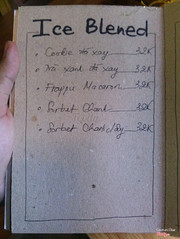 Ice Blened
Cookie đá xay 32K
Trà xanh đá xay 32K
Frappu Macaron 32K
Sorbet Chanh 32K
Sorbet Chanh dây 32K